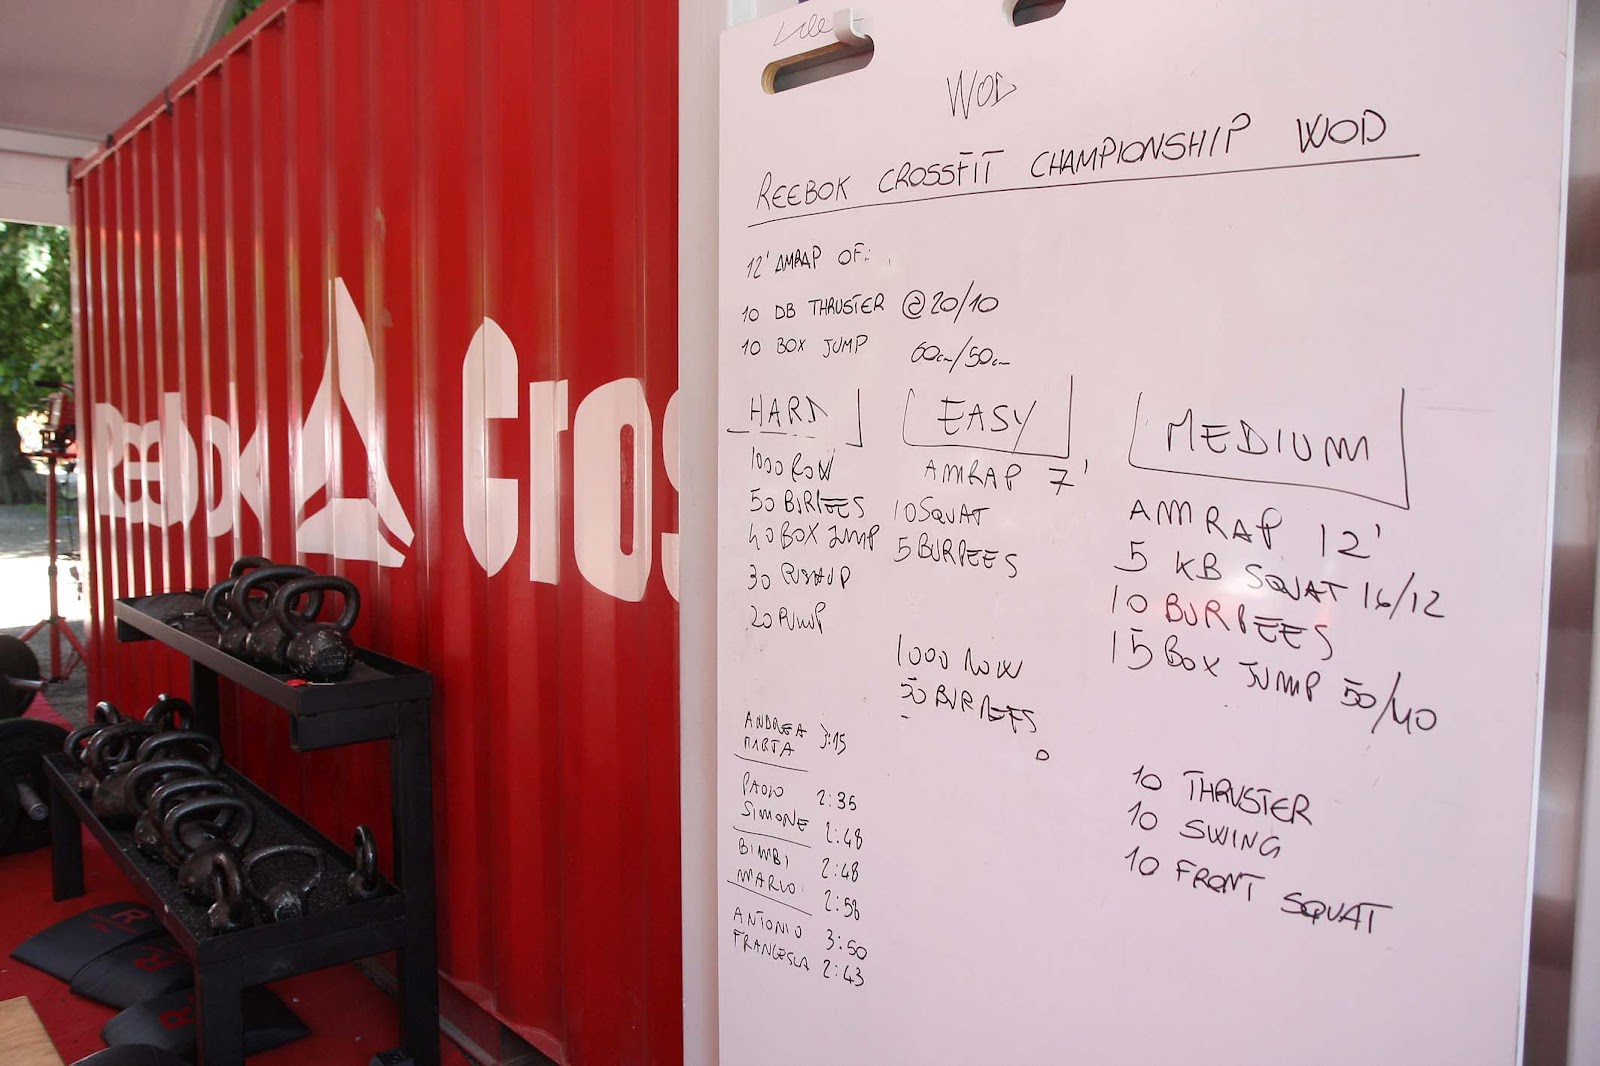 Reebok
Cros
WOD
REEBOK CROSSFIT CHAMPIONSHIP WOD
12' AMRAP OF:
10 DB THRUSTER @ 20/10
10 BOX JUMP 60cm/50cm
HARD
1000 ROW
50 BURPEES
40 BOX JUMP
30 PUSHUP
20
EASY
AMRAP 7'
10 SQUAT
5 BURPEES
1000 ROW
50 BURPEES
MEDIUM
AMRAP 12'
5 KB SQUAT 16/12
10 BURPEES
15 BOX JUMP 50/40
10 THRUSTER
10 SWING
10 FRONT SQUAT
ANDREA 3:15
MARTA
PAOLO 2:35
SIMONE 2:48
BIMBI 2:48
MARCO 2:58
ANTONIO 3:50
FRANCESCA 2:43
R
R
R